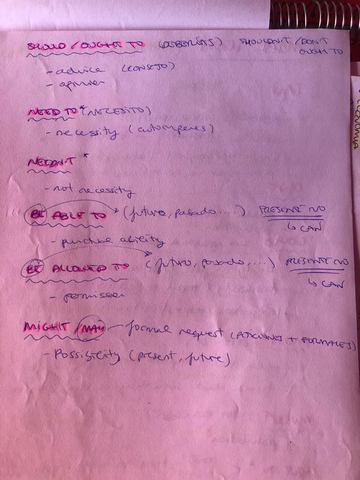 SHOULD / OUGHT TO (DEBERÍAS) SHOULDN'T / DON'T OUGHT TO
- advice (CONSEJO)
- opinion
NEED TO* (NECESITO)
- necessity (autoimpones)
NEEDN'T *
- not necessity
BE ABLE TO (futuro, pasado...) PRESENTE NO
↳ CAN
- ability
BE ALLOWED TO (futuro, pasado,...) PRESENTE NO
↳ CAN
- permission
MIGHT / MAY formal request (PETICIONES + FORMALES)
- Possibility (present, future)